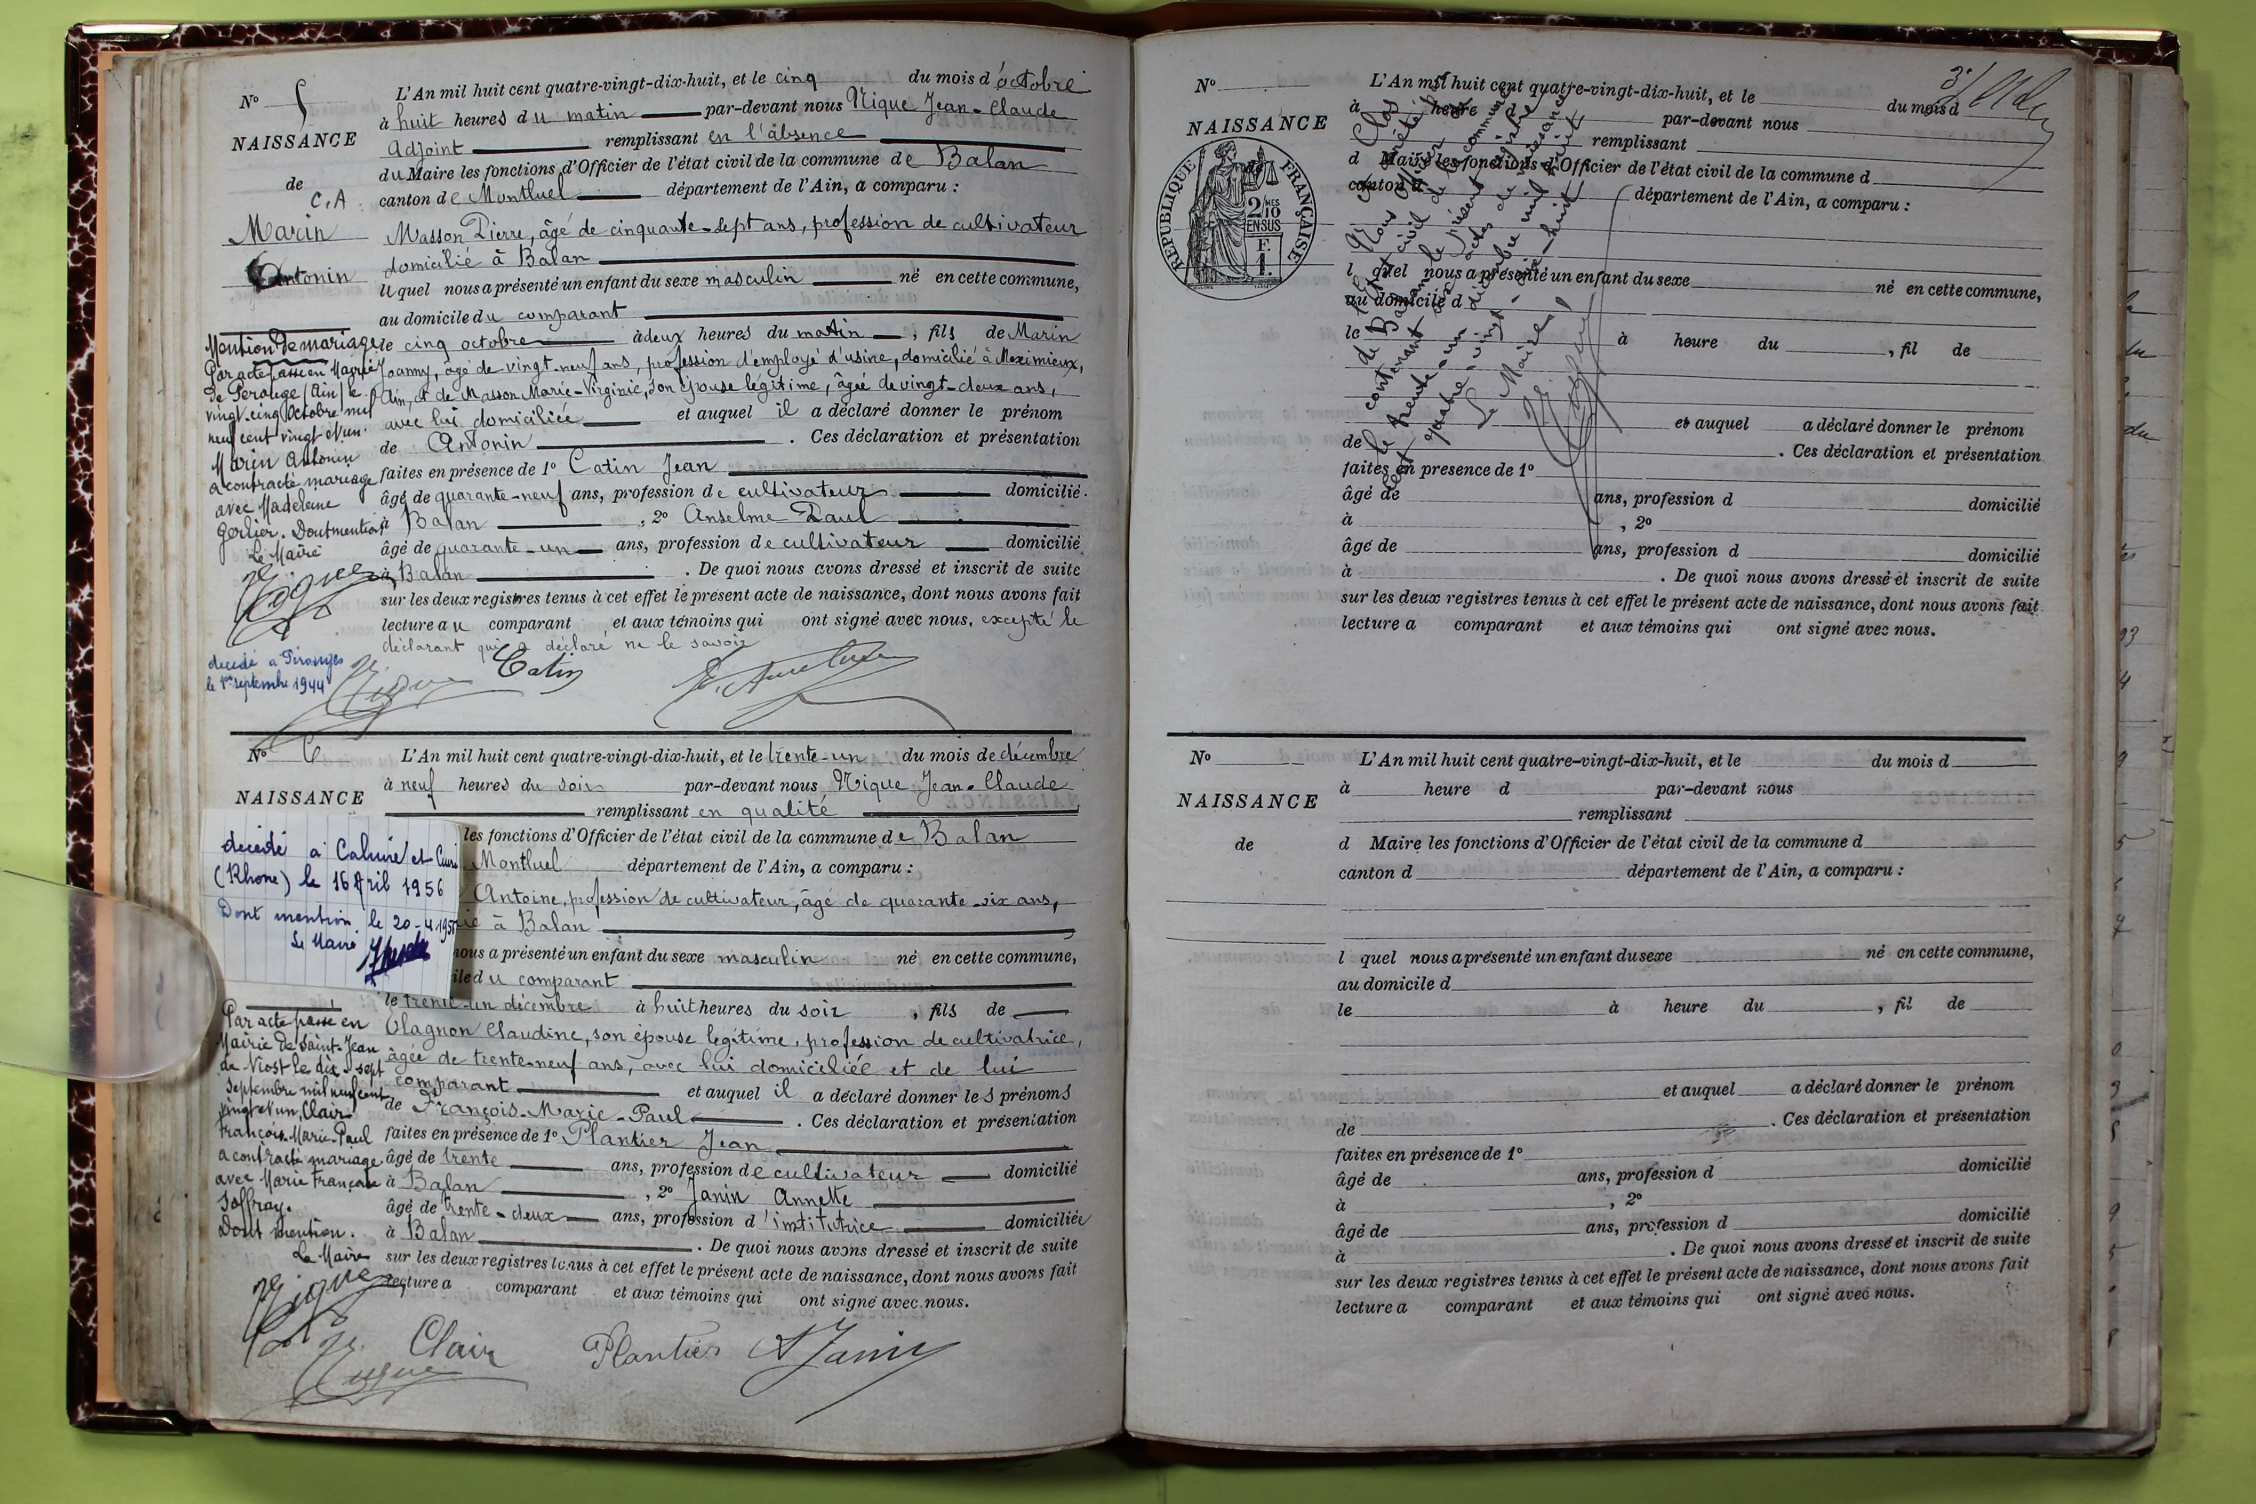 N° 5
NAISSANCE
de
C. A
Marin
Antonin
L'An mil huit cent quatre-vingt-dix-huit, et le cinq du mois d'octobre
à huit heures du matin par-devant nous Nique Jean-Claude
adjoint remplissant en l'absence
du Maire les fonctions d'Officier de l'état civil de la commune de Balan
canton de Montluel département de l'Ain, a comparu :
Masson Pierre, âgé de cinquante-sept ans, profession de cultivateur
domicilié à Balan
lequel nous a présenté un enfant du sexe masculin né en cette commune,
au domicile du comparant
le cinq octobre à deux heures du matin, fils de Marin
Joanny, âgé de vingt-neuf ans, profession d'employé d'usine, domicilié à Meximieux,
Ain, et de Masson Marie-Virginie, son épouse légitime, âgée de vingt-deux ans,
avec lui domiciliée et auquel il a déclaré donner le prénom
de Antonin. Ces déclaration et présentation
faites en présence de 1° Catin Jean
âgé de quarante-neuf ans, profession de cultivateur domicilié
à Balan, 2° Anselme Paul
âgé de quarante-un ans, profession de cultivateur domicilié
à Balan. De quoi nous avons dressé et inscrit de suite
sur les deux registres tenus à cet effet le présent acte de naissance, dont nous avons fait
lecture au comparant et aux témoins qui ont signé avec nous, excepté le
déclarant qui a déclaré ne le savoir
Catin
Mention de mariage
Par acte passé en Mairie
de Perouge (Ain) le
vingt-cinq Octobre mil
neuf cent vingt et un.
Marin Antonin
a contracté mariage
avec Madeleine
Gerlier. Dont mention
Le Maire
Nique
decedé a
le 1er septembre 1944
N° 6
NAISSANCE
L'An mil huit cent quatre-vingt-dix-huit, et le trente-un du mois de décembre
à neuf heures du soir par-devant nous Nique Jean-Claude
remplissant en qualité
les fonctions d'Officier de l'état civil de la commune de Balan
Montluel département de l'Ain, a comparu :
Antoine, profession de cultivateur, âgé de quarante-six ans,
à Balan
nous a présenté un enfant du sexe masculin né en cette commune,
du comparant
le trente-un décembre à huit heures du soir, fils de
Olagnon Claudine, son épouse legitime, profession de cultivatrice,
âgée de trente-neuf ans, avec lui domiciliée et de lui
comparant et auquel il a déclaré donner les prénoms
de François-Marie-Paul. Ces déclaration et présentation
faites en présence de 1° Plantier Jean
âgé de trente ans, profession de cultivateur domicilié
à Balan, 2° Janin Annette
âgé de trente-deux ans, profession d'institutrice domiciliée
à Balan. De quoi nous avons dressé et inscrit de suite
sur les deux registres tenus à cet effet le présent acte de naissance, dont nous avons fait
lecture a comparant et aux témoins qui ont signé avec nous.
Clair Plantier A Janin
Nique
decedé a Caluire et Cuire
(Rhone) le 16 Avril 1956
Dont mention le 20-4-195
Le Maire
Par acte passé en
Mairie de Saint-Jean
de Niost le dix-sept
septembre mil neuf cent
vingt et un, Clair
François-Marie-Paul
a contracté mariage
avec Marie Françoise
Joffray.
Dont mention.
Le Maire
Nique
N°
NAISSANCE
RÉPUBLIQUE FRANÇAISE
2/10 MES
EN SUS
F.
1.
L'An mil huit cent quatre-vingt-dix-huit, et le du mois d
à heure d par-devant nous
remplissant
d Maire les fonctions d'Officier de l'état civil de la commune d
canton d département de l'Ain, a comparu :
l quel nous a présenté un enfant du sexe né en cette commune,
au domicile d
le à heure du , fil de
et auquel a déclaré donner le prénom
de . Ces déclaration et présentation
faites en présence de 1°
âgé de ans, profession d domicilié
à , 2°
âgé de ans, profession d domicilié
à . De quoi nous avons dressé et inscrit de suite
sur les deux registres tenus à cet effet le présent acte de naissance, dont nous avons fait
lecture a comparant et aux témoins qui ont signé avec nous.
Clos et arrêté
Nous Officier de
l'état civil de la commune
de Balan le présent registre
contenant six actes de naissance
le trente-un décembre mil huit
cent quatre-vingt-dix-huit
Le Maire
Nique
N°
NAISSANCE
de
L'An mil huit cent quatre-vingt-dix-huit, et le du mois d
à heure d par-devant nous
remplissant
d Maire les fonctions d'Officier de l'état civil de la commune d
canton d département de l'Ain, a comparu :
l quel nous a présenté un enfant du sexe né en cette commune,
au domicile d
le à heure du , fil de
et auquel a déclaré donner le prénom
de . Ces déclaration et présentation
faites en présence de 1°
âgé de ans, profession d domicilié
à , 2°
âgé de ans, profession d domicilié
à . De quoi nous avons dressé et inscrit de suite
sur les deux registres tenus à cet effet le présent acte de naissance, dont nous avons fait
lecture a comparant et aux témoins qui ont signé avec nous.